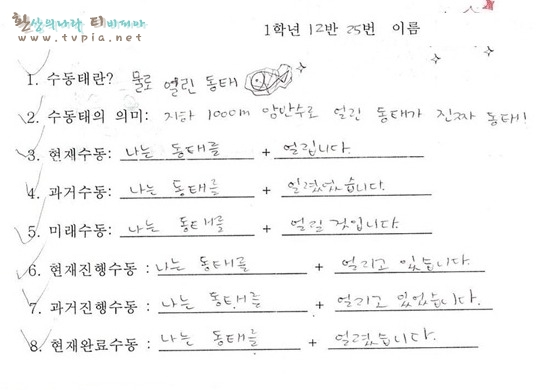 환상의나라 티비피아
www.tvpia.net
1학년 12반 25번 이름
1. 수동태란? 물로 얼린 동태
2. 수동태의 의미: 지하 100m 암반수로 얼린 동태가 진짜 동태!
3. 현재수동: 나는 동태를 + 얼립니다.
4. 과거수동: 나는 동태를 + 얼렸었습니다.
5. 미래수동: 나는 동태를 + 얼릴 것입니다.
6. 현재진행수동 : 나는 동태를 + 얼리고 있습니다.
7. 과거진행수동 : 나는 동태를 + 얼리고 있었습니다.
8. 현재완료수동 : 나는 동태를 + 얼렸습니다.